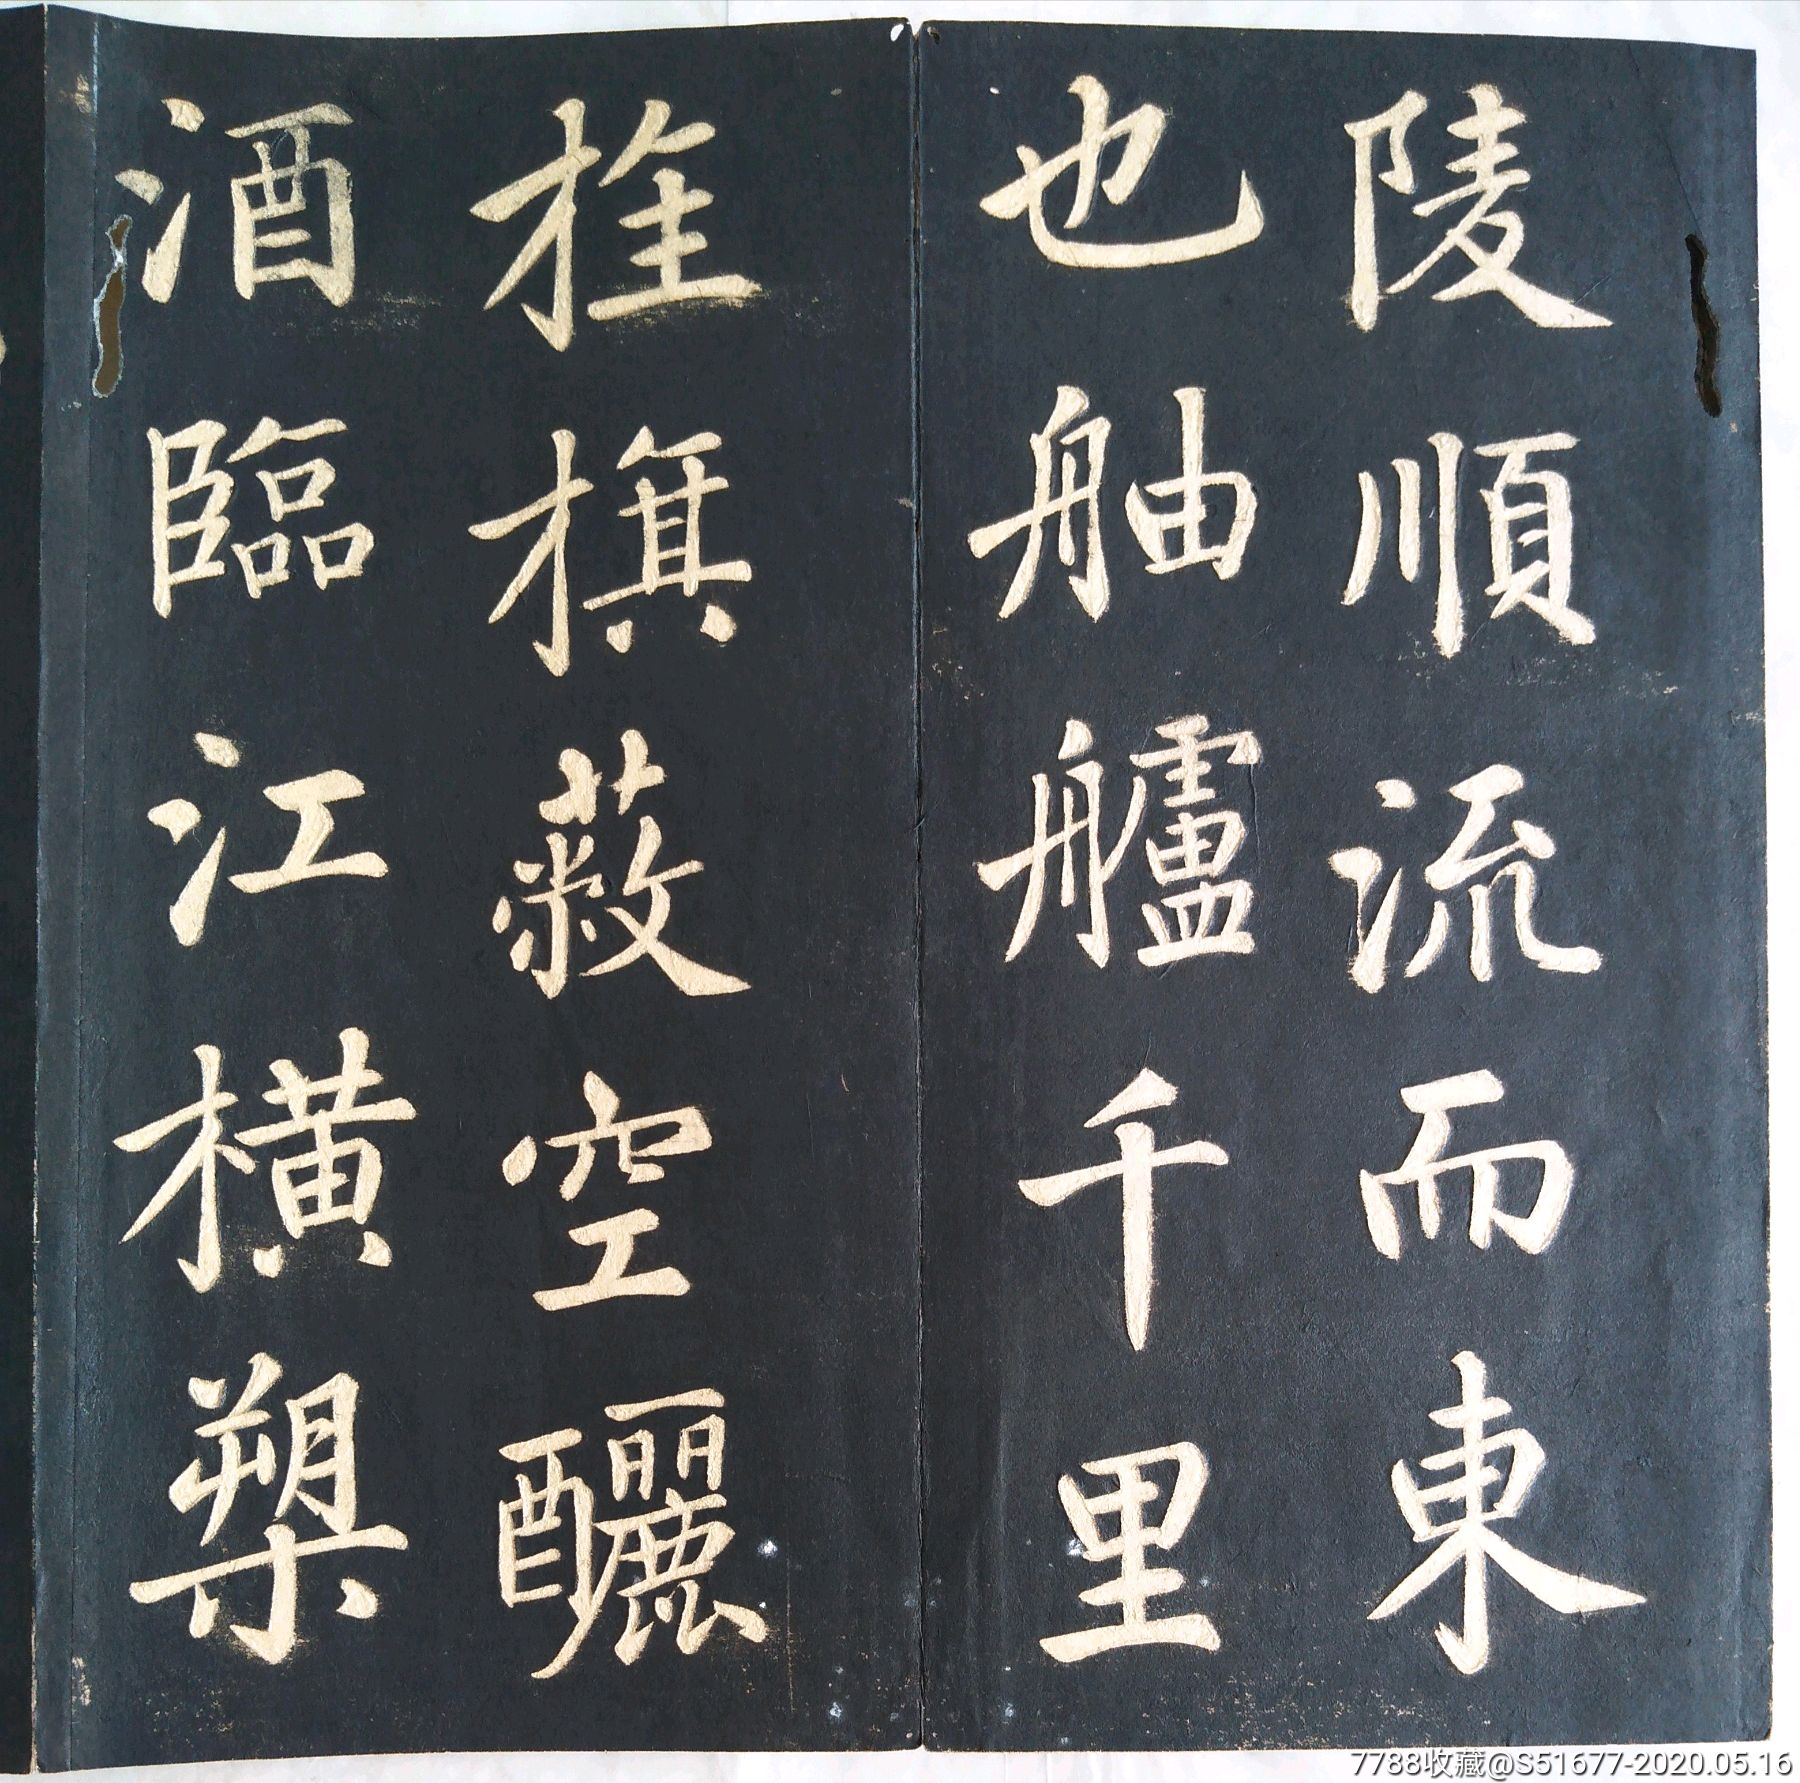 陵順流而東
也舳艫千里
旌旗蔽空釃
酒臨江橫槊
7788收藏@S51677-2020.05.16